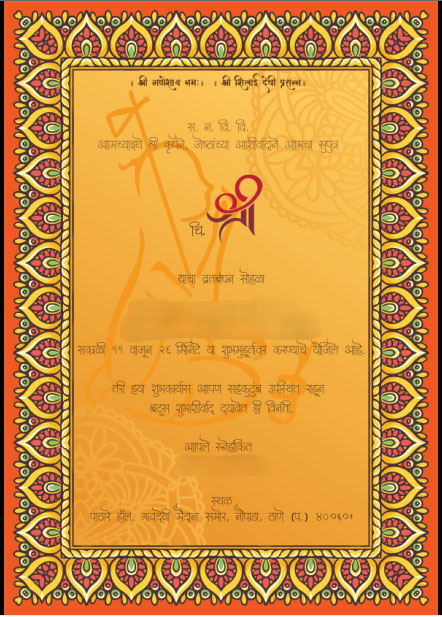 । श्री गणेशाय नमः। । श्री शिलाई देवी प्रसन्न।
स. न. वि. वि.
आमच्याइथे श्री कृपेने, जेष्ठांच्या आशीर्वादाने आमचा सुपुत्र
चि. श्री
याचा व्रतबंधन सोहळा
सकाळी ११ वाजून २६ मिनिटे या शुभमुहूर्तावर करण्याचे योजिले आहे.
तरी ह्या शुभकार्यास आपण सहकुटुंब उपस्थित राहून
बटूस शुभाशीर्वाद द्यावेत ही विनंती.
आपले स्नेहांकित
स्थळ
पाठारे हॉल, गावदेवी मैदाना समोर, नौपाडा, ठाणे (प.) ४००६०१